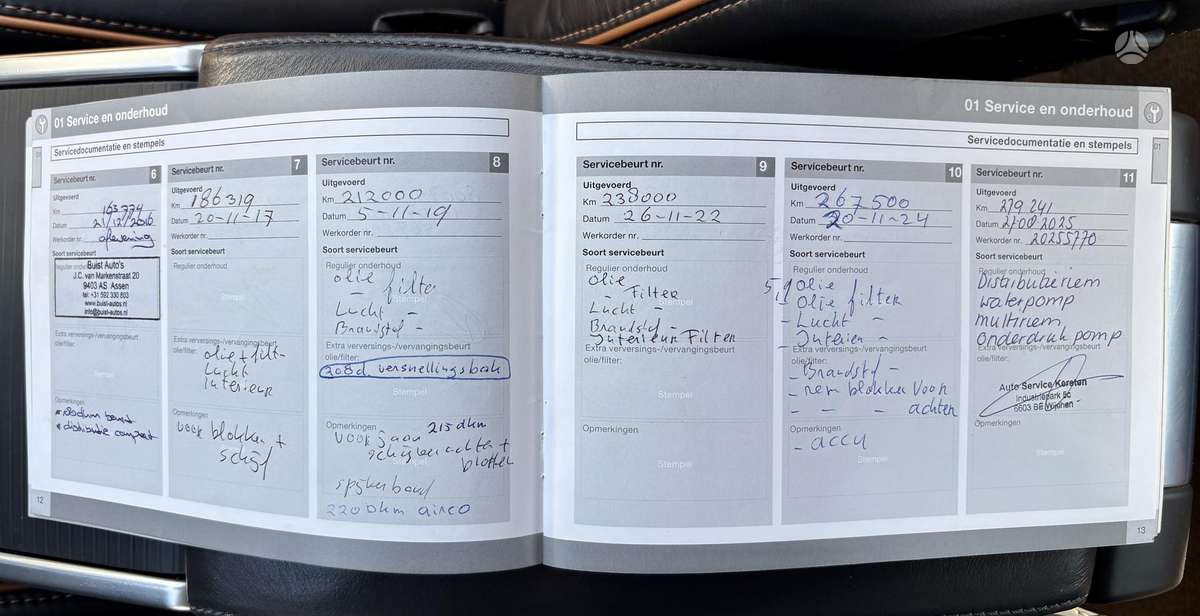 01 Service en onderhoud
Servicedocumentatie en stempels
Servicebeurt nr. 6
Uitgevoerd
Km 163.774
Datum 21/12/2016
Werkorder nr. aflevering
Soort servicebeurt
Regulier onderhoud
Buist Auto's
J.C. van Markenstraat 20
9403 AS Assen
tel: +31 592 330 603
www.buist-autos.nl
info@buist-autos.nl
Extra verversings-/vervangingsbeurt
olie/filter:
Stempel
Opmerkingen
* distributie compleet
12
Servicebeurt nr. 7
Uitgevoerd
Km 186319
Datum 20-11-17
Werkorder nr.
Soort servicebeurt
Regulier onderhoud
Stempel
Extra verversings-/vervangingsbeurt
olie/filter:
olie + filt-
Lucht
interieur
Opmerkingen
voor blokken +
schijf
Servicebeurt nr. 8
Uitgevoerd
Km 212000
Datum 5-11-19
Werkorder nr.
Soort servicebeurt
Regulier onderhoud
olie
- filter
Lucht -
Brandstof -
Stempel
Extra verversings-/vervangingsbeurt
olie/filter:
versnellingsbak
Stempel
Opmerkingen
215 dkm
voorjaar
schijven achter +
blokken
Stempel
220 dkm airco
01 Service en onderhoud
Servicedocumentatie en stempels
01
Servicebeurt nr. 9
Uitgevoerd
Km 238000
Datum 26-11-22
Werkorder nr.
Soort servicebeurt
Regulier onderhoud
olie
- Filter
Lucht -
Brandstof -
Interieur Filter
Stempel
Extra verversings-/vervangingsbeurt
olie/filter:
Stempel
Opmerkingen
Stempel
Servicebeurt nr. 10
Uitgevoerd
Km 267500
Datum 20-11-24
Werkorder nr.
Soort servicebeurt
Regulier onderhoud
5,9 olie
olie filter
- Lucht -
- Interieur -
Extra verversings-/vervangingsbeurt
olie/filter:
- Brandstof -
- rem blokken voor
- - - achter
Opmerkingen
- accu
Stempel
Servicebeurt nr. 11
Uitgevoerd
Km 279.241
Datum 21/08/2025
Werkorder nr. 20255770
Soort servicebeurt
Regulier onderhoud
Distributieriem
waterpomp
multiriem
onderdruk pomp
Extra verversings-/vervangingsbeurt
olie/filter:
Auto Service Kersten
Industriepark 5c
6603 BE Wijchen
Opmerkingen
Stempel
13